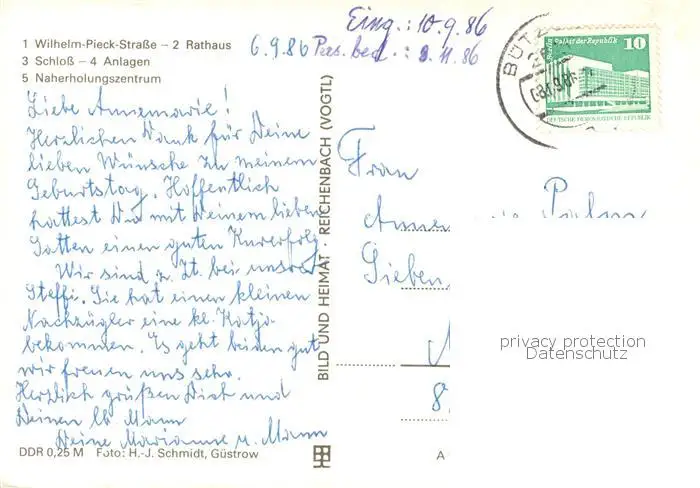 1 Wilhelm-Pieck-Straße – 2 Rathaus
3 Schloß – 4 Anlagen
5 Naherholungszentrum
6.9.86
Eing.: 10.9.86
BÜTZ
Palast der Republik 10
DEUTSCHE DEMOKRATISCHE REPUBLIK
Liebe Annemarie!
Herzlichen Dank für Deine
lieben Wünsche zu meinem
Geburtstag. Hoffentlich
hattest Du mit Deinem lieben
Gatten einen guten Kurerfolg
Wir sind z. Zt. bei unsrer
Steffi. Sie hat einen kleinen
Nachzügler eine kl. Katja
bekommen. Es geht beiden gut
wir freuen uns sehr.
Herzlich grüßen Dich und
Deinen lb. Mann
Deine Marianne u. Mann
BILD UND HEIMAT · REICHENBACH (VOGTL)
Frau
Palm
Sieben
8
privacy protection
Datenschutz
DDR 0,25 M Foto: H.-J. Schmidt, Güstrow
A